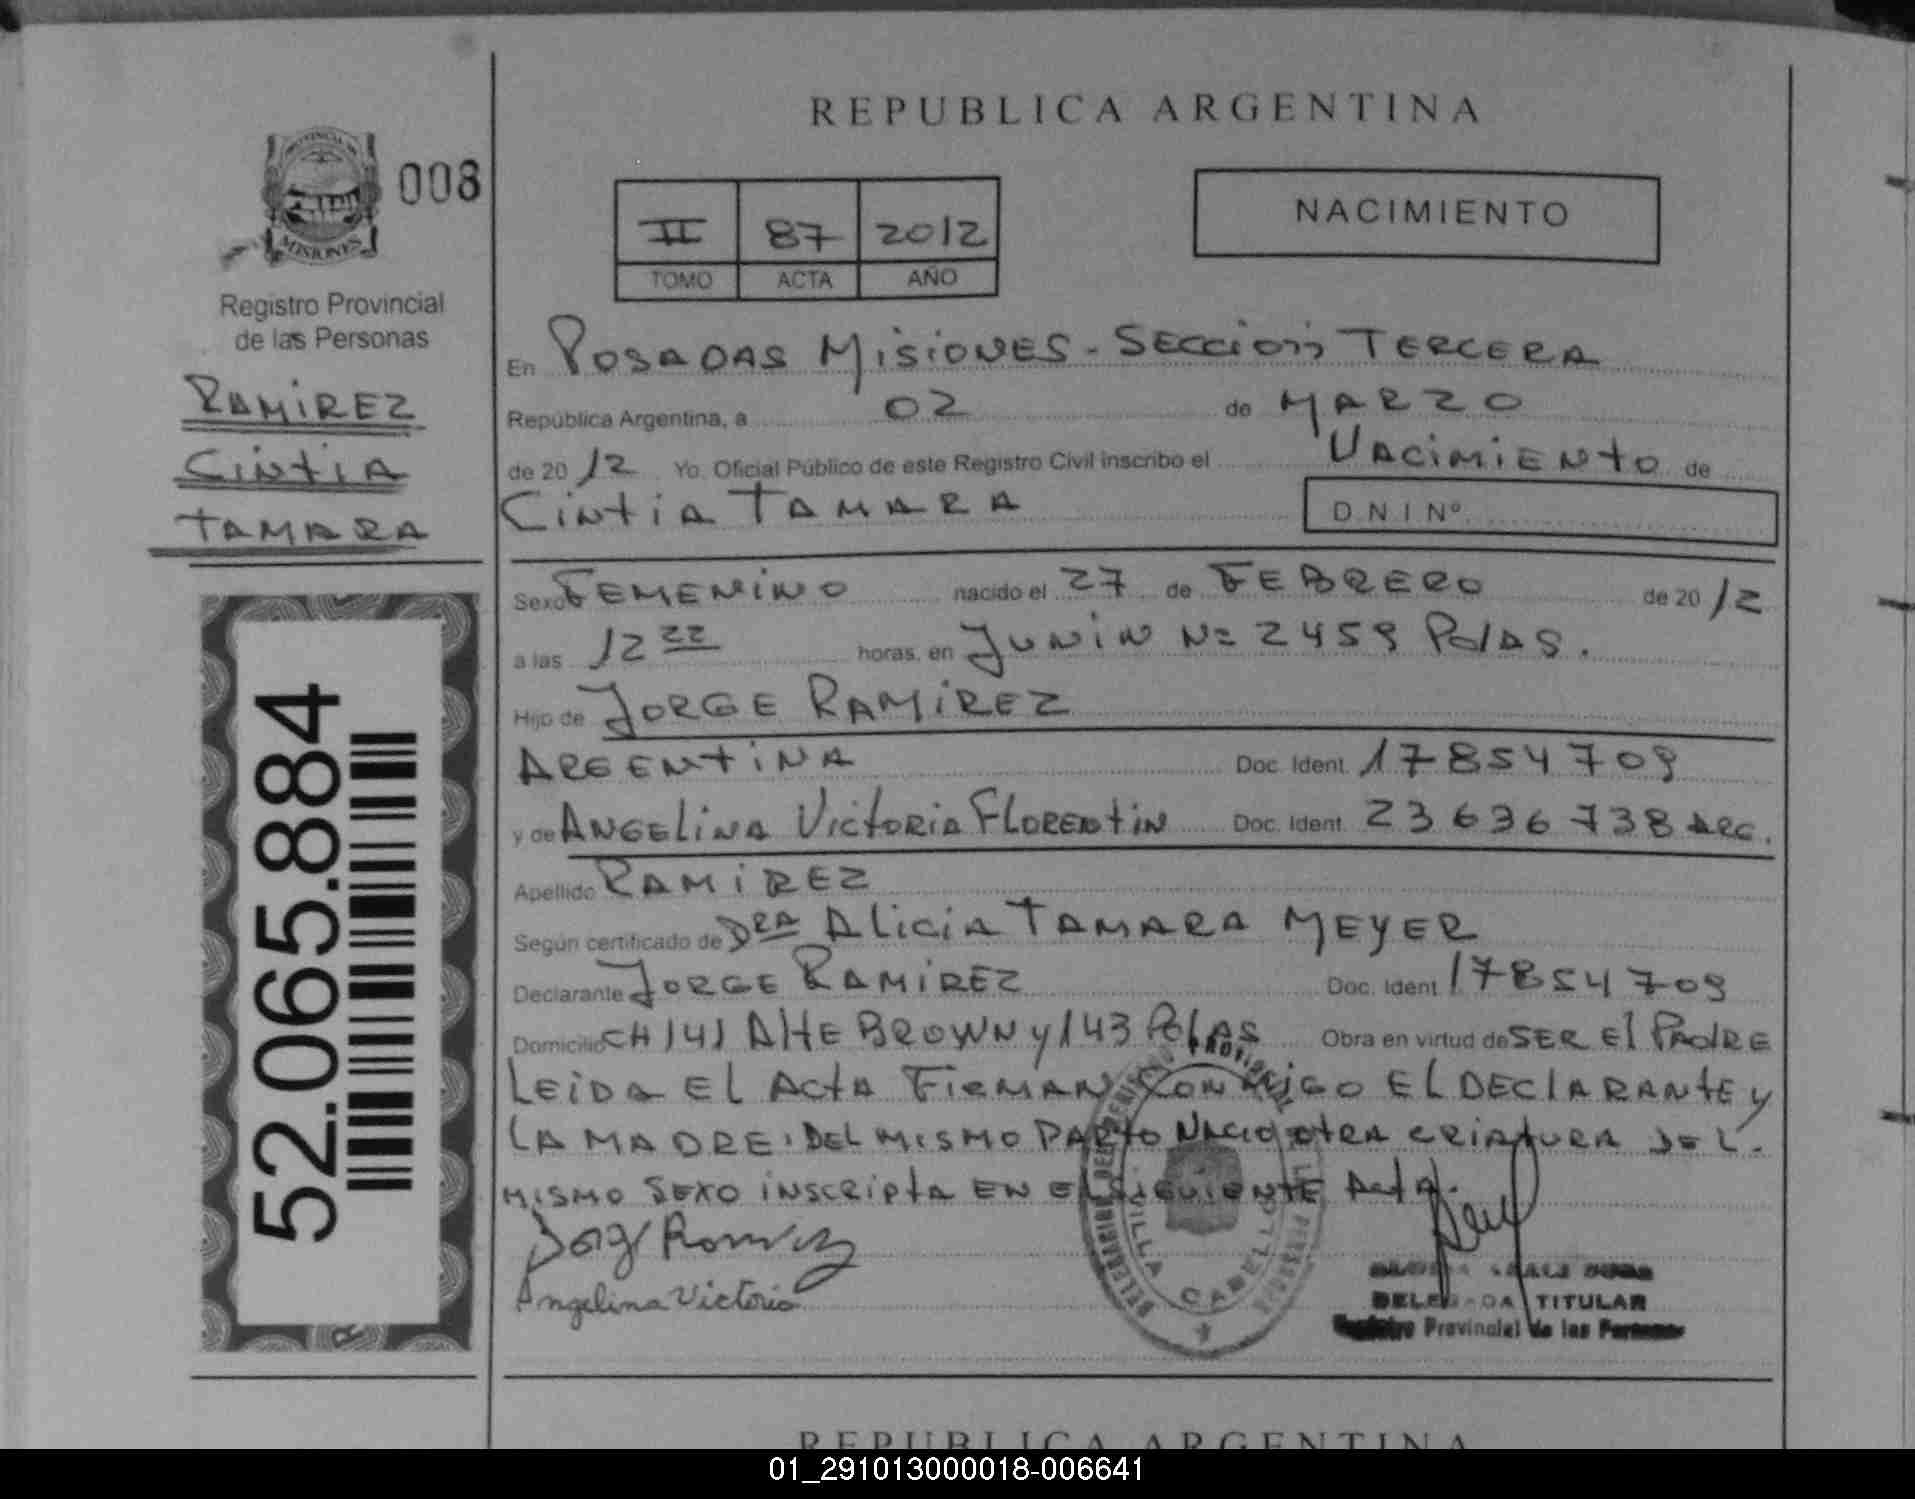 REPUBLICA ARGENTINA
PROVINCIA DE
MISIONES
008
Registro Provincial
de las Personas
RAMIREZ
CINTIA
TAMARA
52.065.884
II 87 2012
TOMO ACTA AÑO
NACIMIENTO
En POSADAS MISIONES - SECCION TERCERA
República Argentina, a 02 de MARZO
de 2012 Yo. Oficial Público de este Registro Civil inscribo el NACIMIENTO de
CINTIA TAMARA D N I Nº
Sexo FEMENINO nacido el 27 de FEBRERO de 2012
a las 12 22 horas, en JUNIN Nº 2459 PDAS.
Hijo de JORGE RAMIREZ
ARGENTINA Doc. Ident. 17854709
y de ANGELINA VICTORIA FLORENTIN Doc. Ident. 23636738 ARG.
Apellido RAMIREZ
Según certificado de DRA ALICIA TAMARA MEYER
Declarante JORGE RAMIREZ Doc. Ident 17854709
Domicilio CH 141 ALTE BROWN y 143 PDAS Obra en virtud de SER El PADRE
LEIDA EL ACTA FIRMAN CONMIGO EL DECLARANTE y
LA MADRE. DEL MISMO PARTO NACIO OTRA CRIATURA DEL
MISMO SEXO INSCRIPTA EN EL SIGUIENTE Acta.
Jorge Ramirez
Angelina Victoria
VILLA CABELLO
DELEGADA TITULAR
Registro Provincial de las Personas
REPUBLICA ARGENTINA
01_291013000018-006641